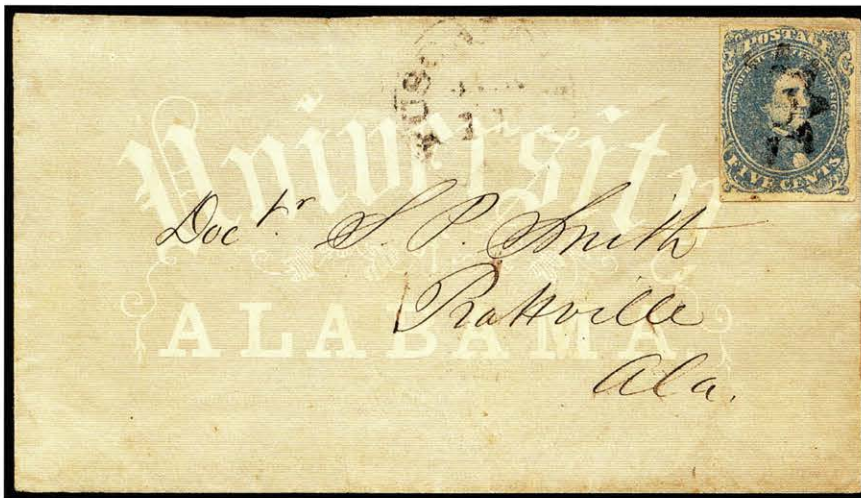 POSTAGE
FIVE CENTS
University
of
ALABAMA
Doctr S. P. Smith
Prattville
Ala.